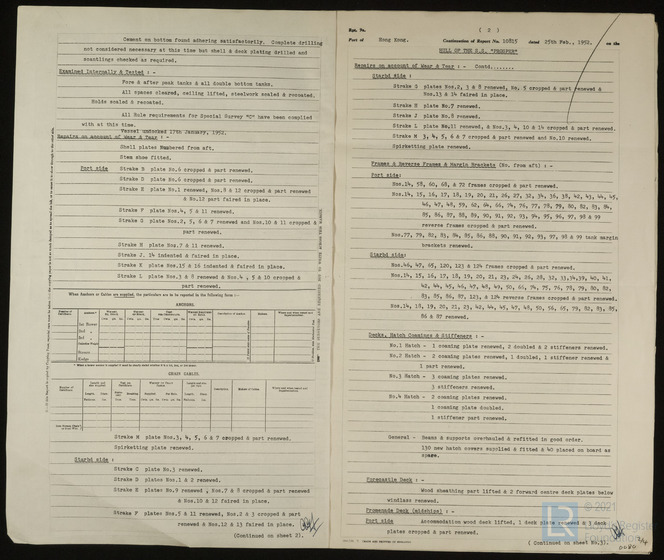 Cement on bottom found adhering satisfactorily. Complete drilling
not considered necessary at this time but shell & deck plating drilled and
scantlings checked as required.
Examined Internally & Tested : -
Fore & after peak tanks & all double bottom tanks.
All spaces cleared, ceiling lifted, steelwork scaled & recoated.
Holds scaled & recoated.
All Rule requirements for Special Survey "C" have been complied
with at this time.
Vessel undocked 17th January, 1952.
Repairs on account of Wear & Tear : -
Shell plates Numbered from aft.
Stem shoe fitted.
Port side Strake B plate No.6 cropped & part renewed.
Strake D plate No.6 cropped & part renewed.
Strake E plate No.1 renewed, Nos.8 & 12 cropped & part renewed
& No.12 part faired in place.
Strake F plate Nos.4, 5 & 11 renewed.
Strake G plate Nos.2, 5, 6 & 7 renewed and Nos.10 & 11 cropped &
part renewed.
Strake H plate Nos.7 & 11 renewed.
Strake J. 14 indented & faired in place.
Strake K plate Nos.15 & 16 indented & faired in place.
Strake L plate Nos.3 & 8 renewed & Nos.4 , 5 & 10 cropped &
part renewed.
When Anchors or Cables are supplied, the particulars are to be reported in the following form :—
ANCHORS.
CHAIN CABLES.
Strake M plate Nos.3, 4, 5, 6 & 7 cropped & part renewed.
Spirketting plate renewed.
Starbd side :
Strake C plate No.3 renewed.
Strake D plate Nos.1 & 2 renewed.
Strake E plate Nos.9 renewed , Nos.7 & 8 cropped & part renewed
& Nos.10 & 12 faired in place.
Strake F plate Nos.5 & 11 renewed, Nos.2 & 3 cropped & part
renewed & Nos.12 & 13 faired in place.
(Continued on sheet 2).
Rpt. 9a.
( 2 )
Port of Hong Kong. Continuation of Report No. 10815 dated 25th Feb., 1952. on the
HULL OF THE S.S. "PROSPER"
Repairs on account of Wear & Tear : - Contd........
Starbd Side :
Strake G plates Nos.2, 3 & 8 renewed, No. 5 cropped & part renewed &
Nos.13 & 14 faired in place.
Strake H plate No.7 renewed.
Strake J plate No.8 renewed.
Strake L plate No.11 renewed, & Nos.3, 4, 10 & 14 cropped & part renewed.
Strake M 3, 4, 5, 6 & 7 cropped & part renewed and No.10 renewed.
Spirketting plate renewed.
Frames & Reverse Frames & Margin Brackets (No. from aft) : -
Port side:
Nos.14, 58, 60, 68, & 72 frames cropped & part renewed.
Nos.14, 15, 16, 17, 18, 19, 20, 21, 26, 27, 32, 34, 36, 38, 42, 43, 44, 45,
46, 47, 48, 59, 62, 64, 66, 74, 76, 77, 78, 79, 80, 82, 83, 84,
85, 86, 87, 88, 89, 90, 91, 92, 93, 94, 95, 96, 97, 98 & 99
reverse frames cropped & part renewed.
Nos.77, 79, 82, 83, 84, 85, 86, 88, 90, 91, 92, 93, 97, 98 & 99 tank margin
brackets renewed.
Starbd side:
Nos.46, 47, 69, 120, 123 & 124 frames cropped & part renewed.
Nos.14, 15, 16, 17, 18, 19, 20, 21, 23, 24, 26, 28, 32, 33,34,39, 40, 41,
42, 44, 45, 46, 47, 48, 49, 50, 66, 74, 75, 76, 78, 79, 80, 82,
83, 85, 86, 87, 123, & 124 reverse frames cropped & part renewed.
Nos.14, 18, 19, 20, 21, 23, 42, 44, 45, 47, 48, 50, 56, 65, 79, 82, 83, 85,
86 & 87 renewed.
Decks, Hatch Coamings & Stiffeners : -
No.1 Hatch - 1 coaming plate renewed, 2 doubled & 2 stiffeners renewed.
No.2 Hatch - 2 coaming plates renewed, 1 doubled, 1 stiffener renewed &
1 part renewed.
No.3 Hatch - 3 coaming plates renewed.
3 stiffeners renewed.
No.4 Hatch - 2 coaming plates renewed.
1 coaming plate doubled.
1 stiffener part renewed.
General - Beams & supports overhauled & refitted in good order.
130 new hatch covers supplied & fitted & 40 placed on board as
spare.
Forecastle Deck : -
Wood sheathing part lifted & 2 forward centre deck plates below
windlass renewed.
Promenade Deck (midships) : -
Port side Accommodation wood deck lifted, 1 deck plate renewed & 3 deck
plates cropped & part renewed.
( Continued on sheet No.3).
© 2021
Lloyd's Register
Foundation